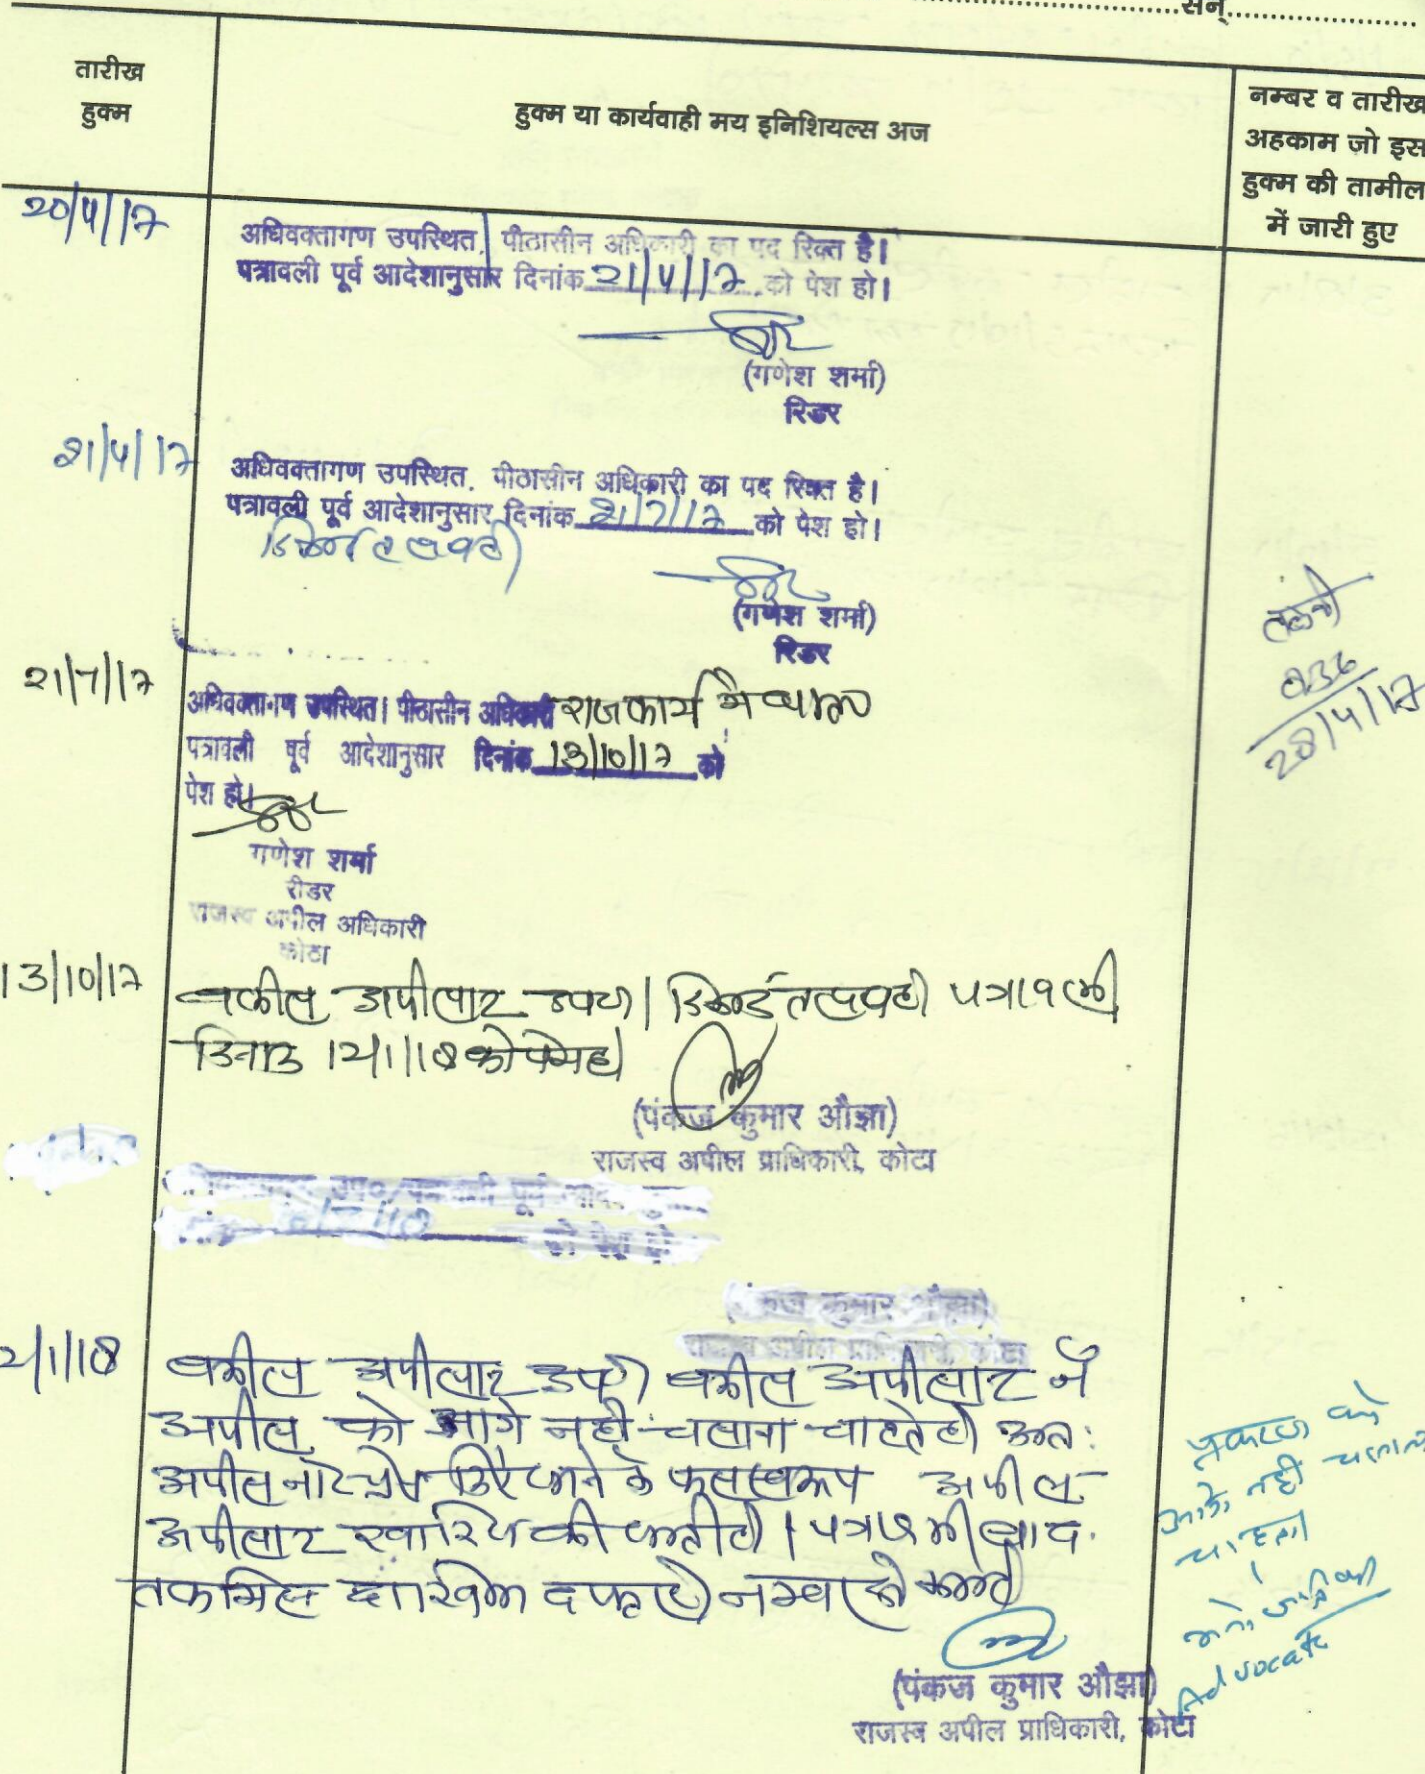 सन्
तारीख
हुक्म
हुक्म या कार्यवाही मय इनिशियल्स अज
नम्बर व तारीख
अहकाम जो इस
हुक्म की तामील
में जारी हुए
20/4/17
अधिवक्तागण उपस्थित. पीठासीन अधिकारी का पद रिक्त है।
पत्रावली पूर्व आदेशानुसार दिनांक 21/4/17 को पेश हो।
(गणेश शर्मा)
रिडर
21/4/17
अधिवक्तागण उपस्थित. पीठासीन अधिकारी का पद रिक्त है।
पत्रावली पूर्व आदेशानुसार दिनांक 21/7/17 को पेश हो।
(गणेश शर्मा)
रिडर
28/4/17
21/7/17
अधिवक्तागण उपस्थित। पीठासीन अधिकारी राजकार्य में व्यस्त
पत्रावली पूर्व आदेशानुसार दिनांक 13/10/17 को
पेश हो।
गणेश शर्मा
रीडर
राजस्व अपील अधिकारी
कोटा
13/10/17
वकील अपीलार उप0। रिकार्ड तलब हो पत्रावली
दिनांक 12/1/18 को पेश हो
(पंकज कुमार औझा)
राजस्व अपील प्राधिकारी, कोटा
(पंकज कुमार औझा)
राजस्व अपील प्राधिकारी, कोटा
2/1/18
वकील अपीलार उप0 वकील अपीलार ने
अपील को आगे नहीं चलाना चाहते है अतः
अपील नोट प्रेस किये जाने के फलस्वरूप अपील
अपीलार खारिज की जाती है। पत्रावली बाद
तकमिल दाखिल दफ्तर हो नम्बर से कम हो
(पंकज कुमार औझा)
राजस्व अपील प्राधिकारी, कोटा
प्रकरण को
आगे नही चलाना
चाहता
Advocate